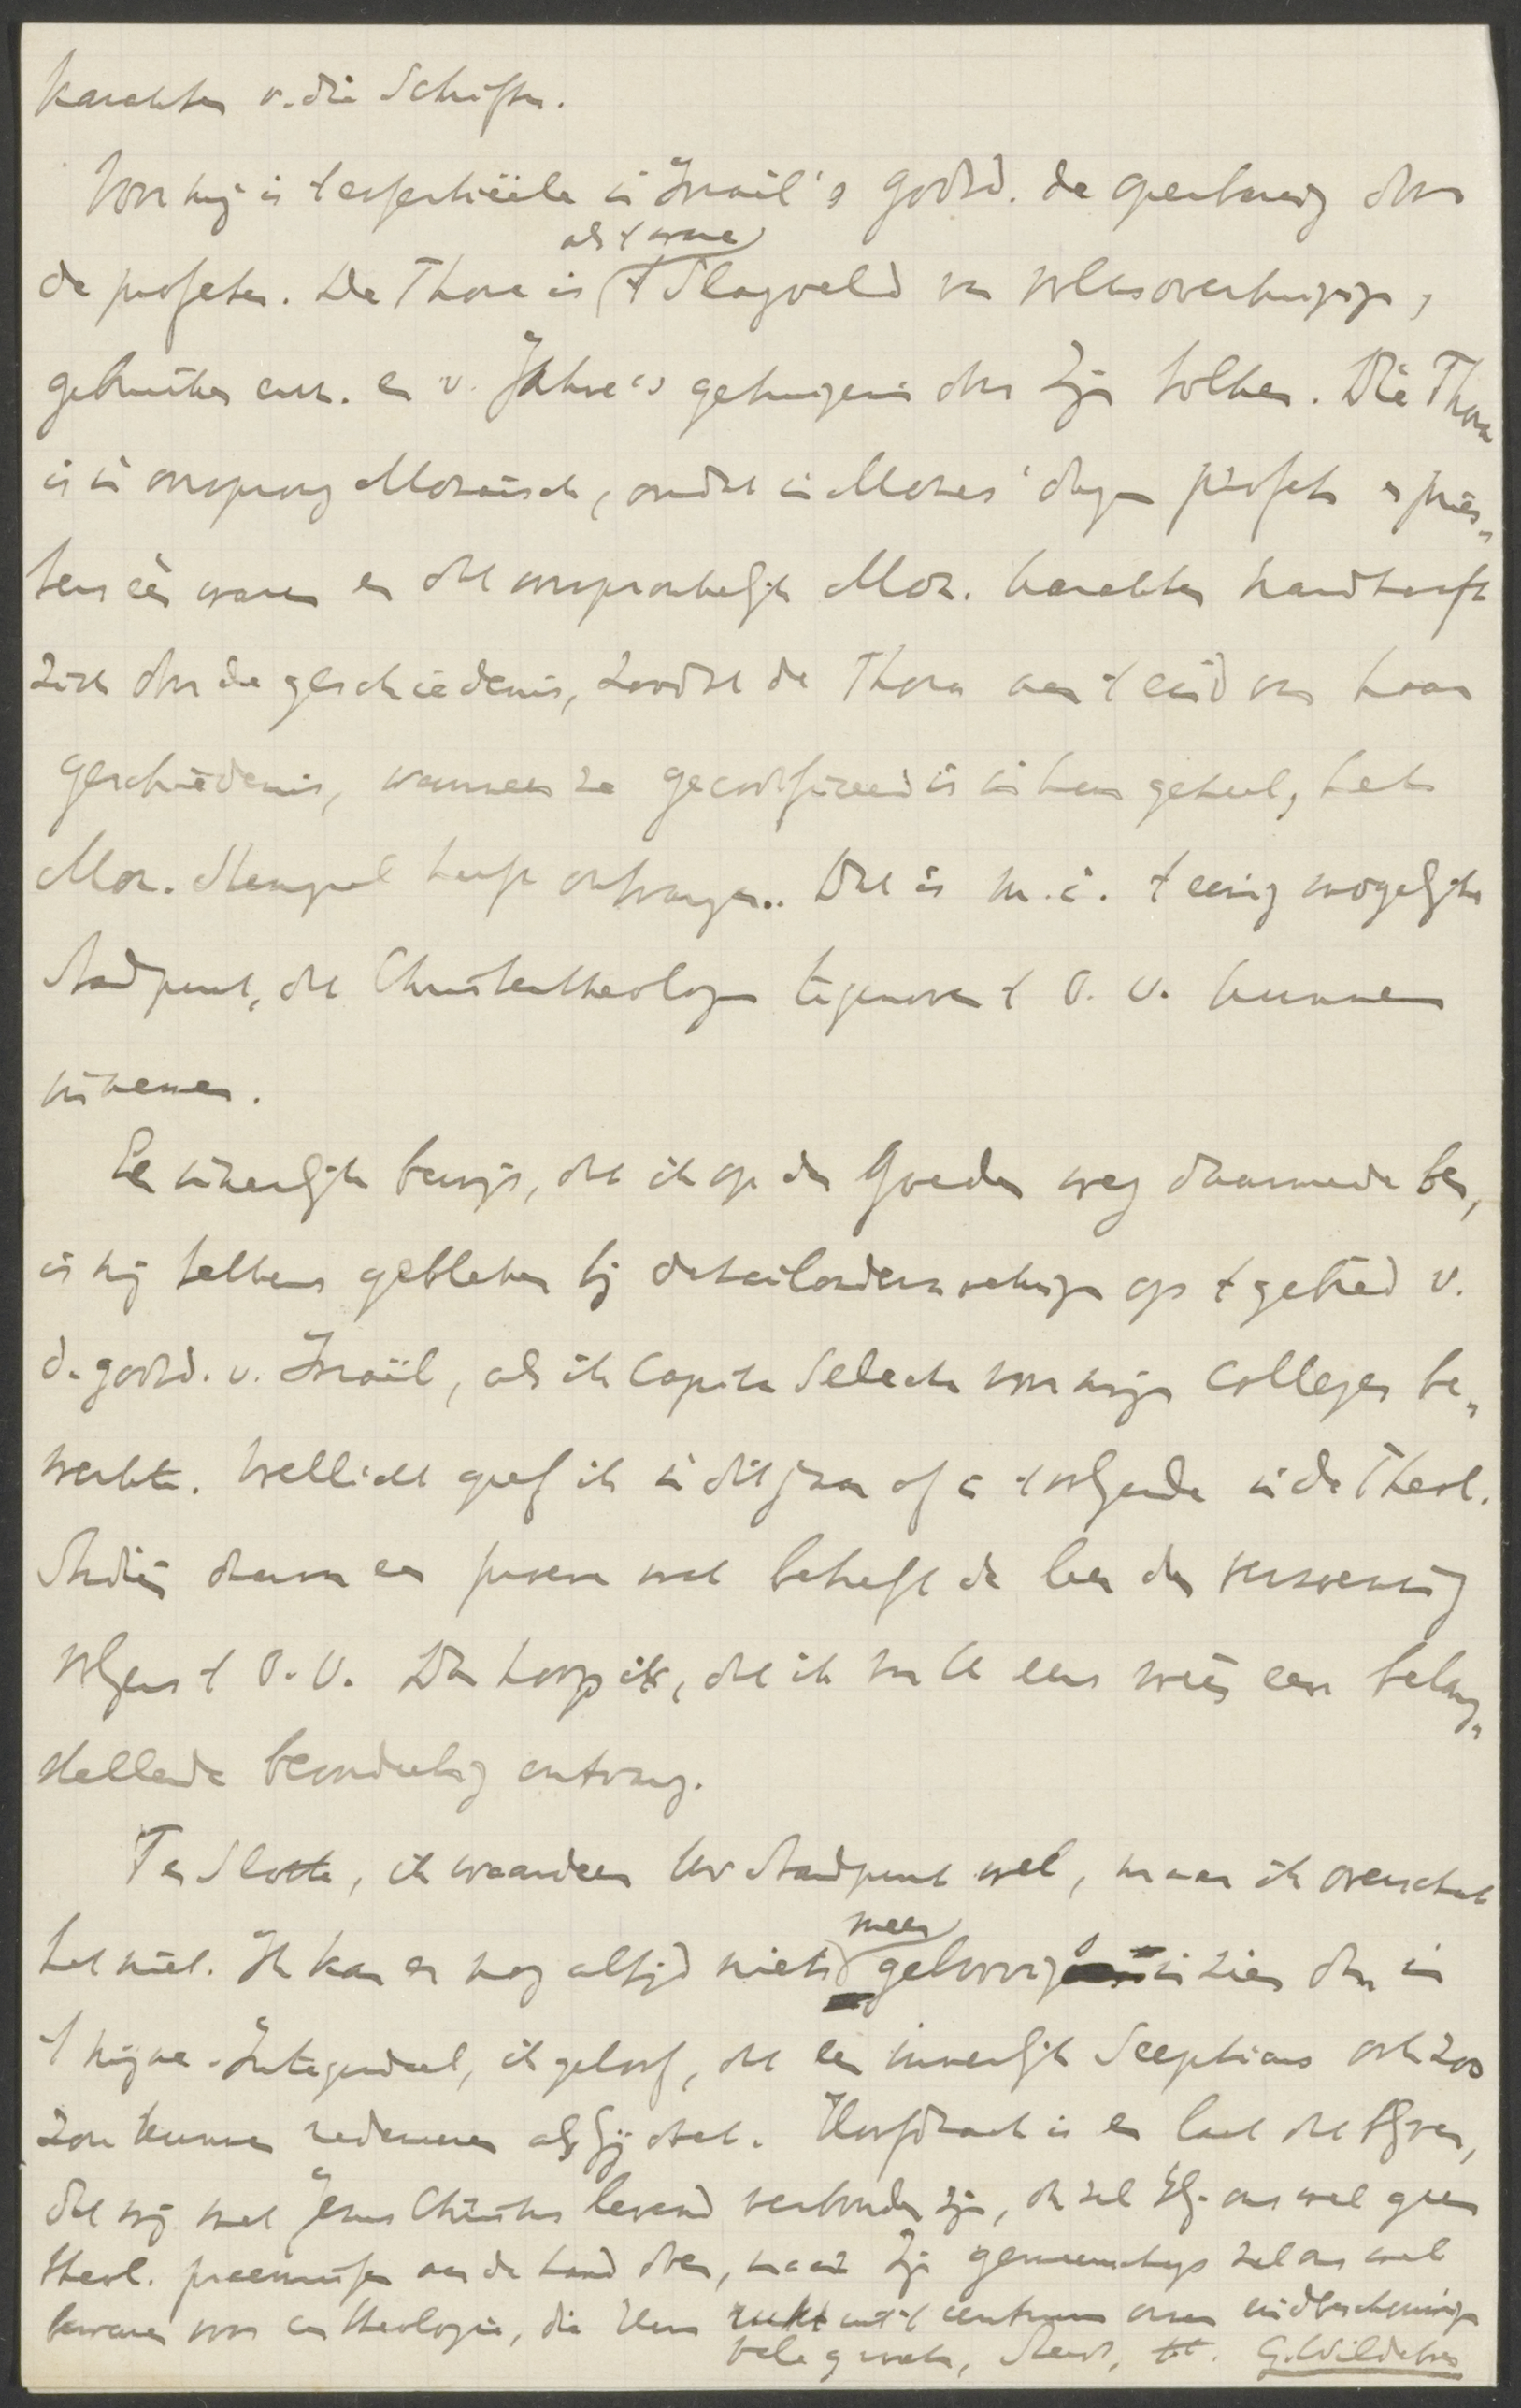 karakter v. die Schriften.
Voor mij is 't essentiëele in Israël's godsd. de openbaring door
als 't ware
de profeten. De Thora is 't Slagveld van volksovertuigingen,
gebruiken enz. en v. Jahve's getuigenis door zijn tolken. Die Thora
is in oorsprong Mozaïsch, omdat in Mozes' dagen profeet en pries„
ter één waren en dat oorspronkelijk Moz. karakter handhaaft
zich door de geschiedenis, zoodat de Thora aan 't eind van haar
geschiedenis, wanneer ze gecodificeerd is in haar geheel, het
Moz. Stempel heeft ontvangen. Dat is m.i. 't eenig mogelijke
Standpunt, dat Christentheologen tegenover 't O.V. kunnen
innemen.
Een innerlijk bewijs, dat ik op den goeden weg daarmede ben,
is mij telkens gebleken bij detailonderzoekingen op 't gebied v.
d. godsd. v. Israël, als ik Capita Selecta voor mijn Colleges be„
werkte. Wellicht geef ik in dit jaar of in 't volgende in de Theol.
Studiën daarvan een proeve wat betreft de leer der verzoening
volgens 't O.V. Dan hoop ik, dat ik van U eens weer een belang„
stellende beoordeeling ontvang.
Ten Slotte, ik waardeer Uw Standpunt wel, maar ik overschat
het niet. Ik kan er nog altijd niets
meer
geloovigs in zien dan in
't mijne. Integendeel, ik geloof, dat een innerlijk Scepticus ook zoo
zou kunnen redeneeren als gij doet. Hoofdzaak is en laat dat blijven,
dat wij met Jezus Christus levend verbonden zijn, dan zal Hij ons wel geen
theol. praemissen aan de hand doen, maar zijn gemeenschap zal ons wel
bewaren voor een theologie, die Hem rukt uit 't centrum onzer
Steeds, tt. G. Wildeboer